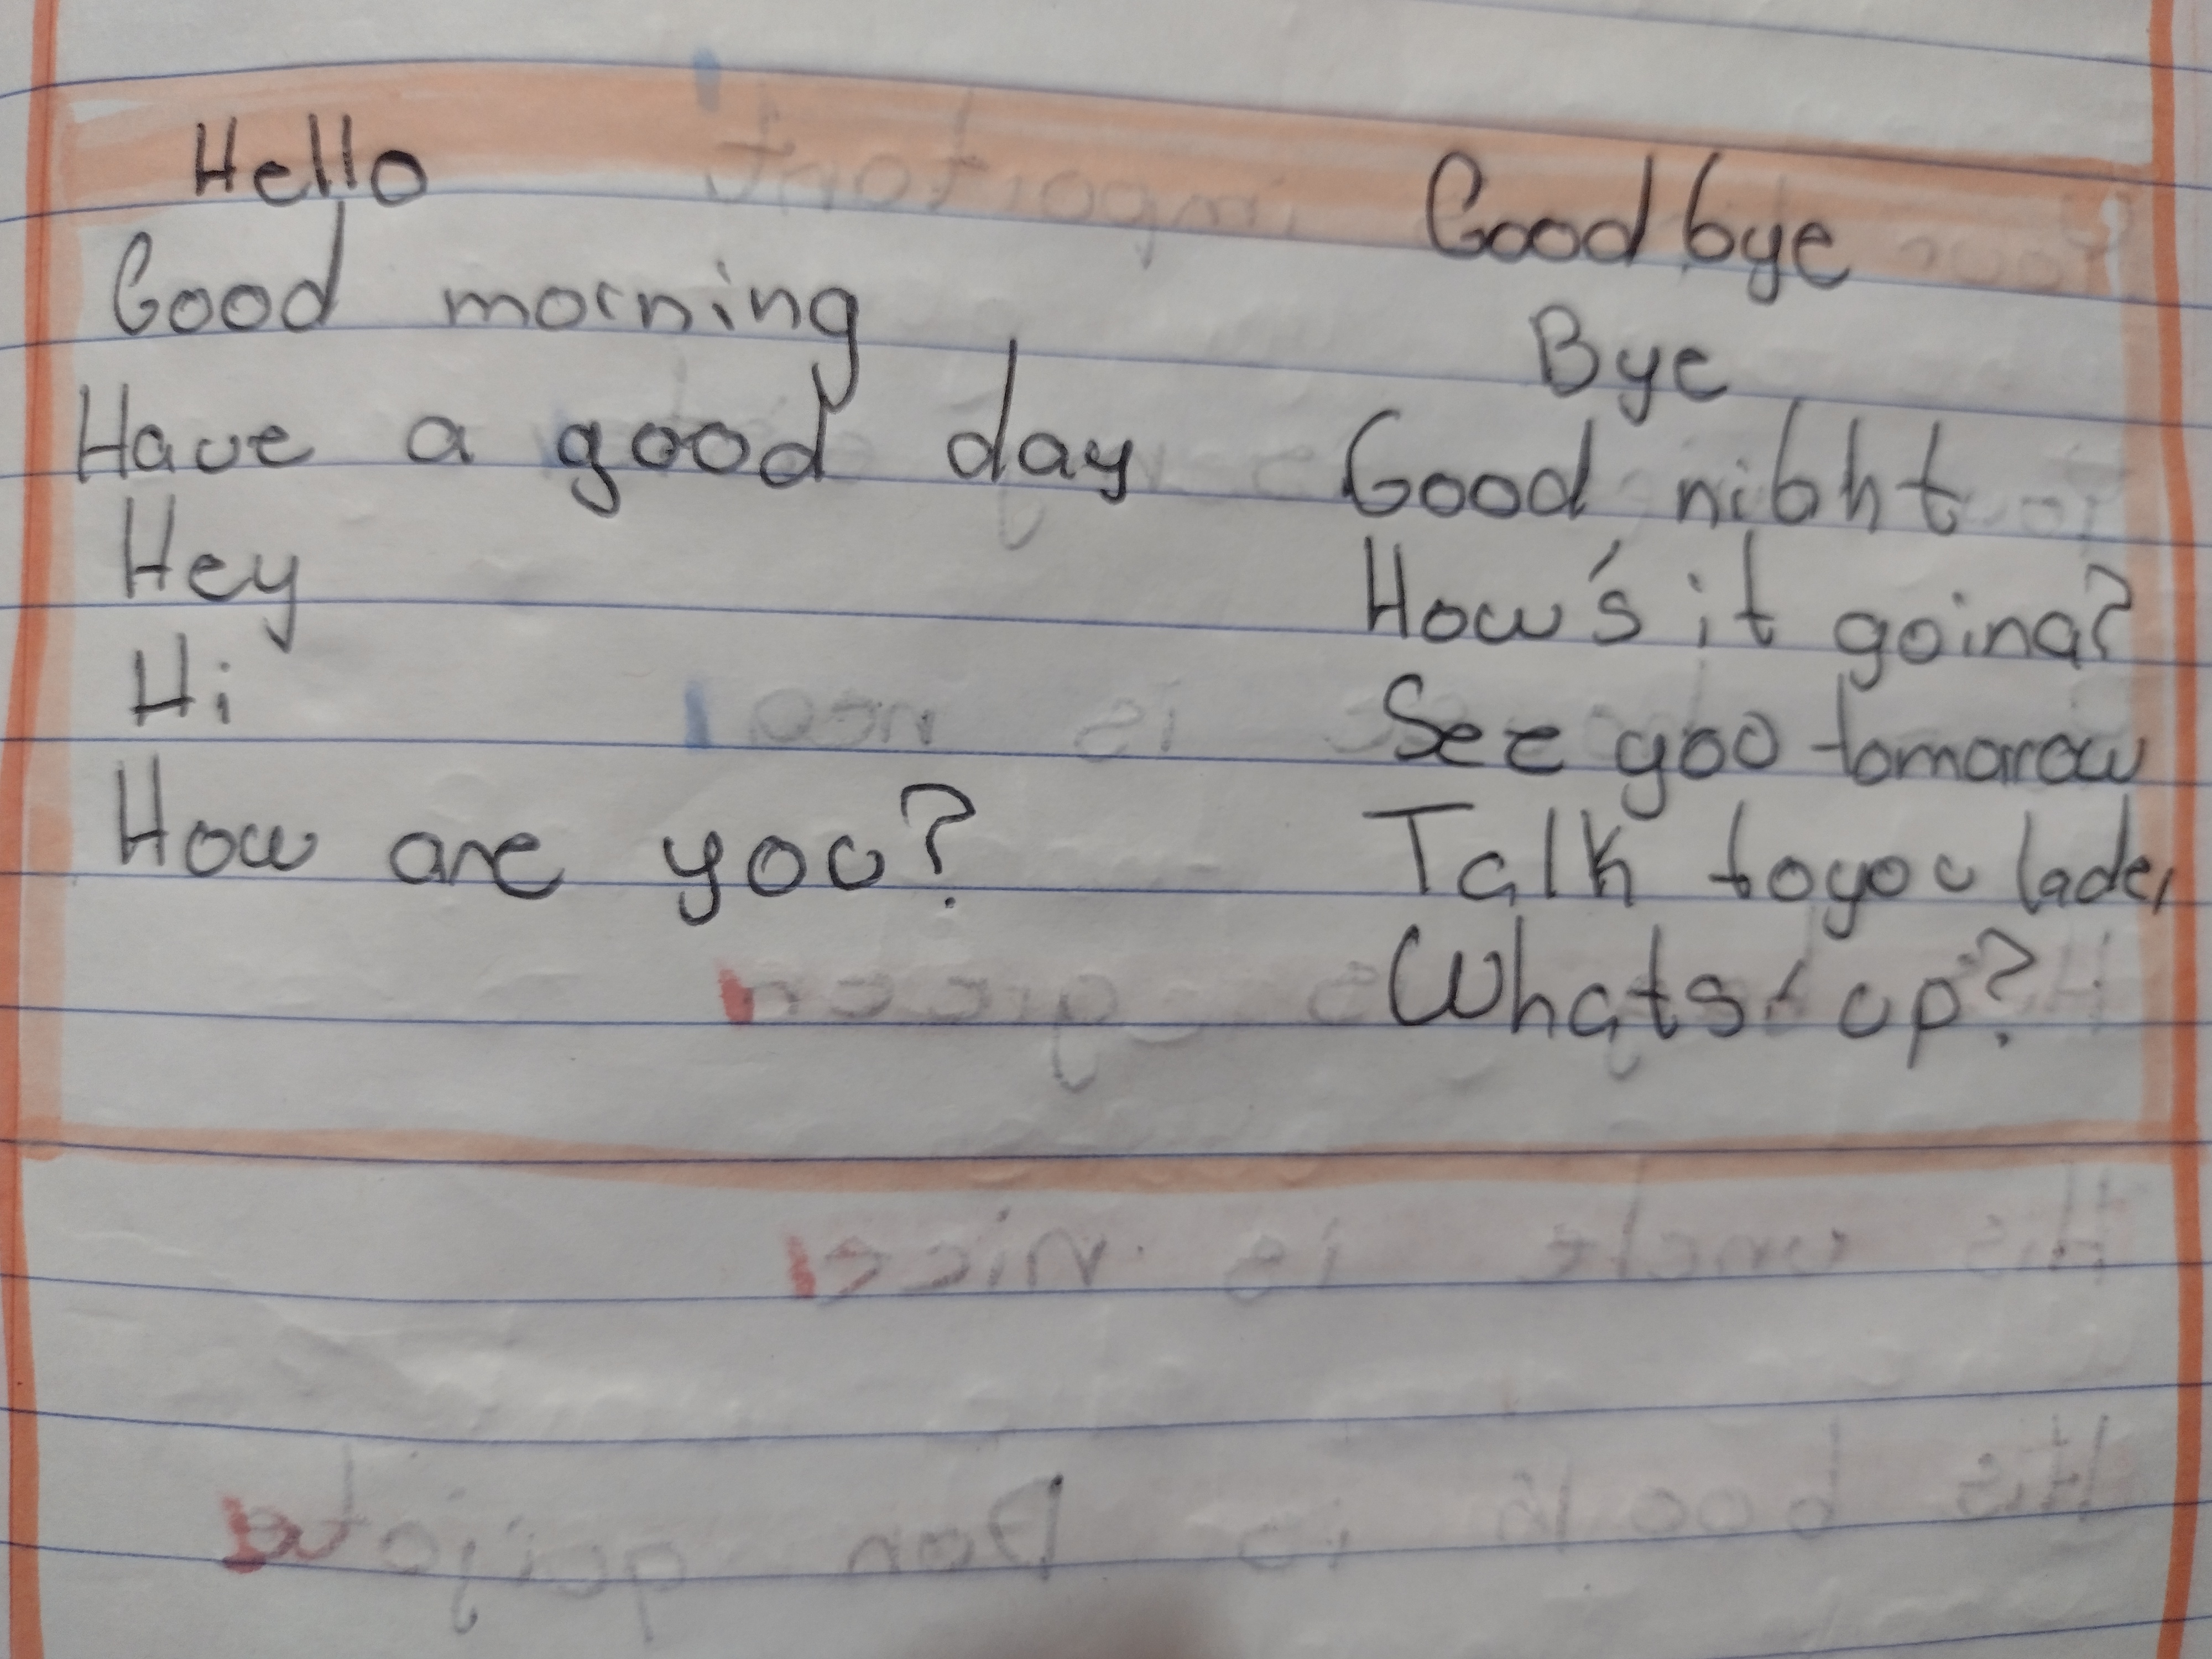 Hello
Good morning
Have a good day
Hey
Hi
How are you?
Good bye
Bye
Good nibht
How's it going?
See yoo tomorow
Talk to you lader
Whats' up?